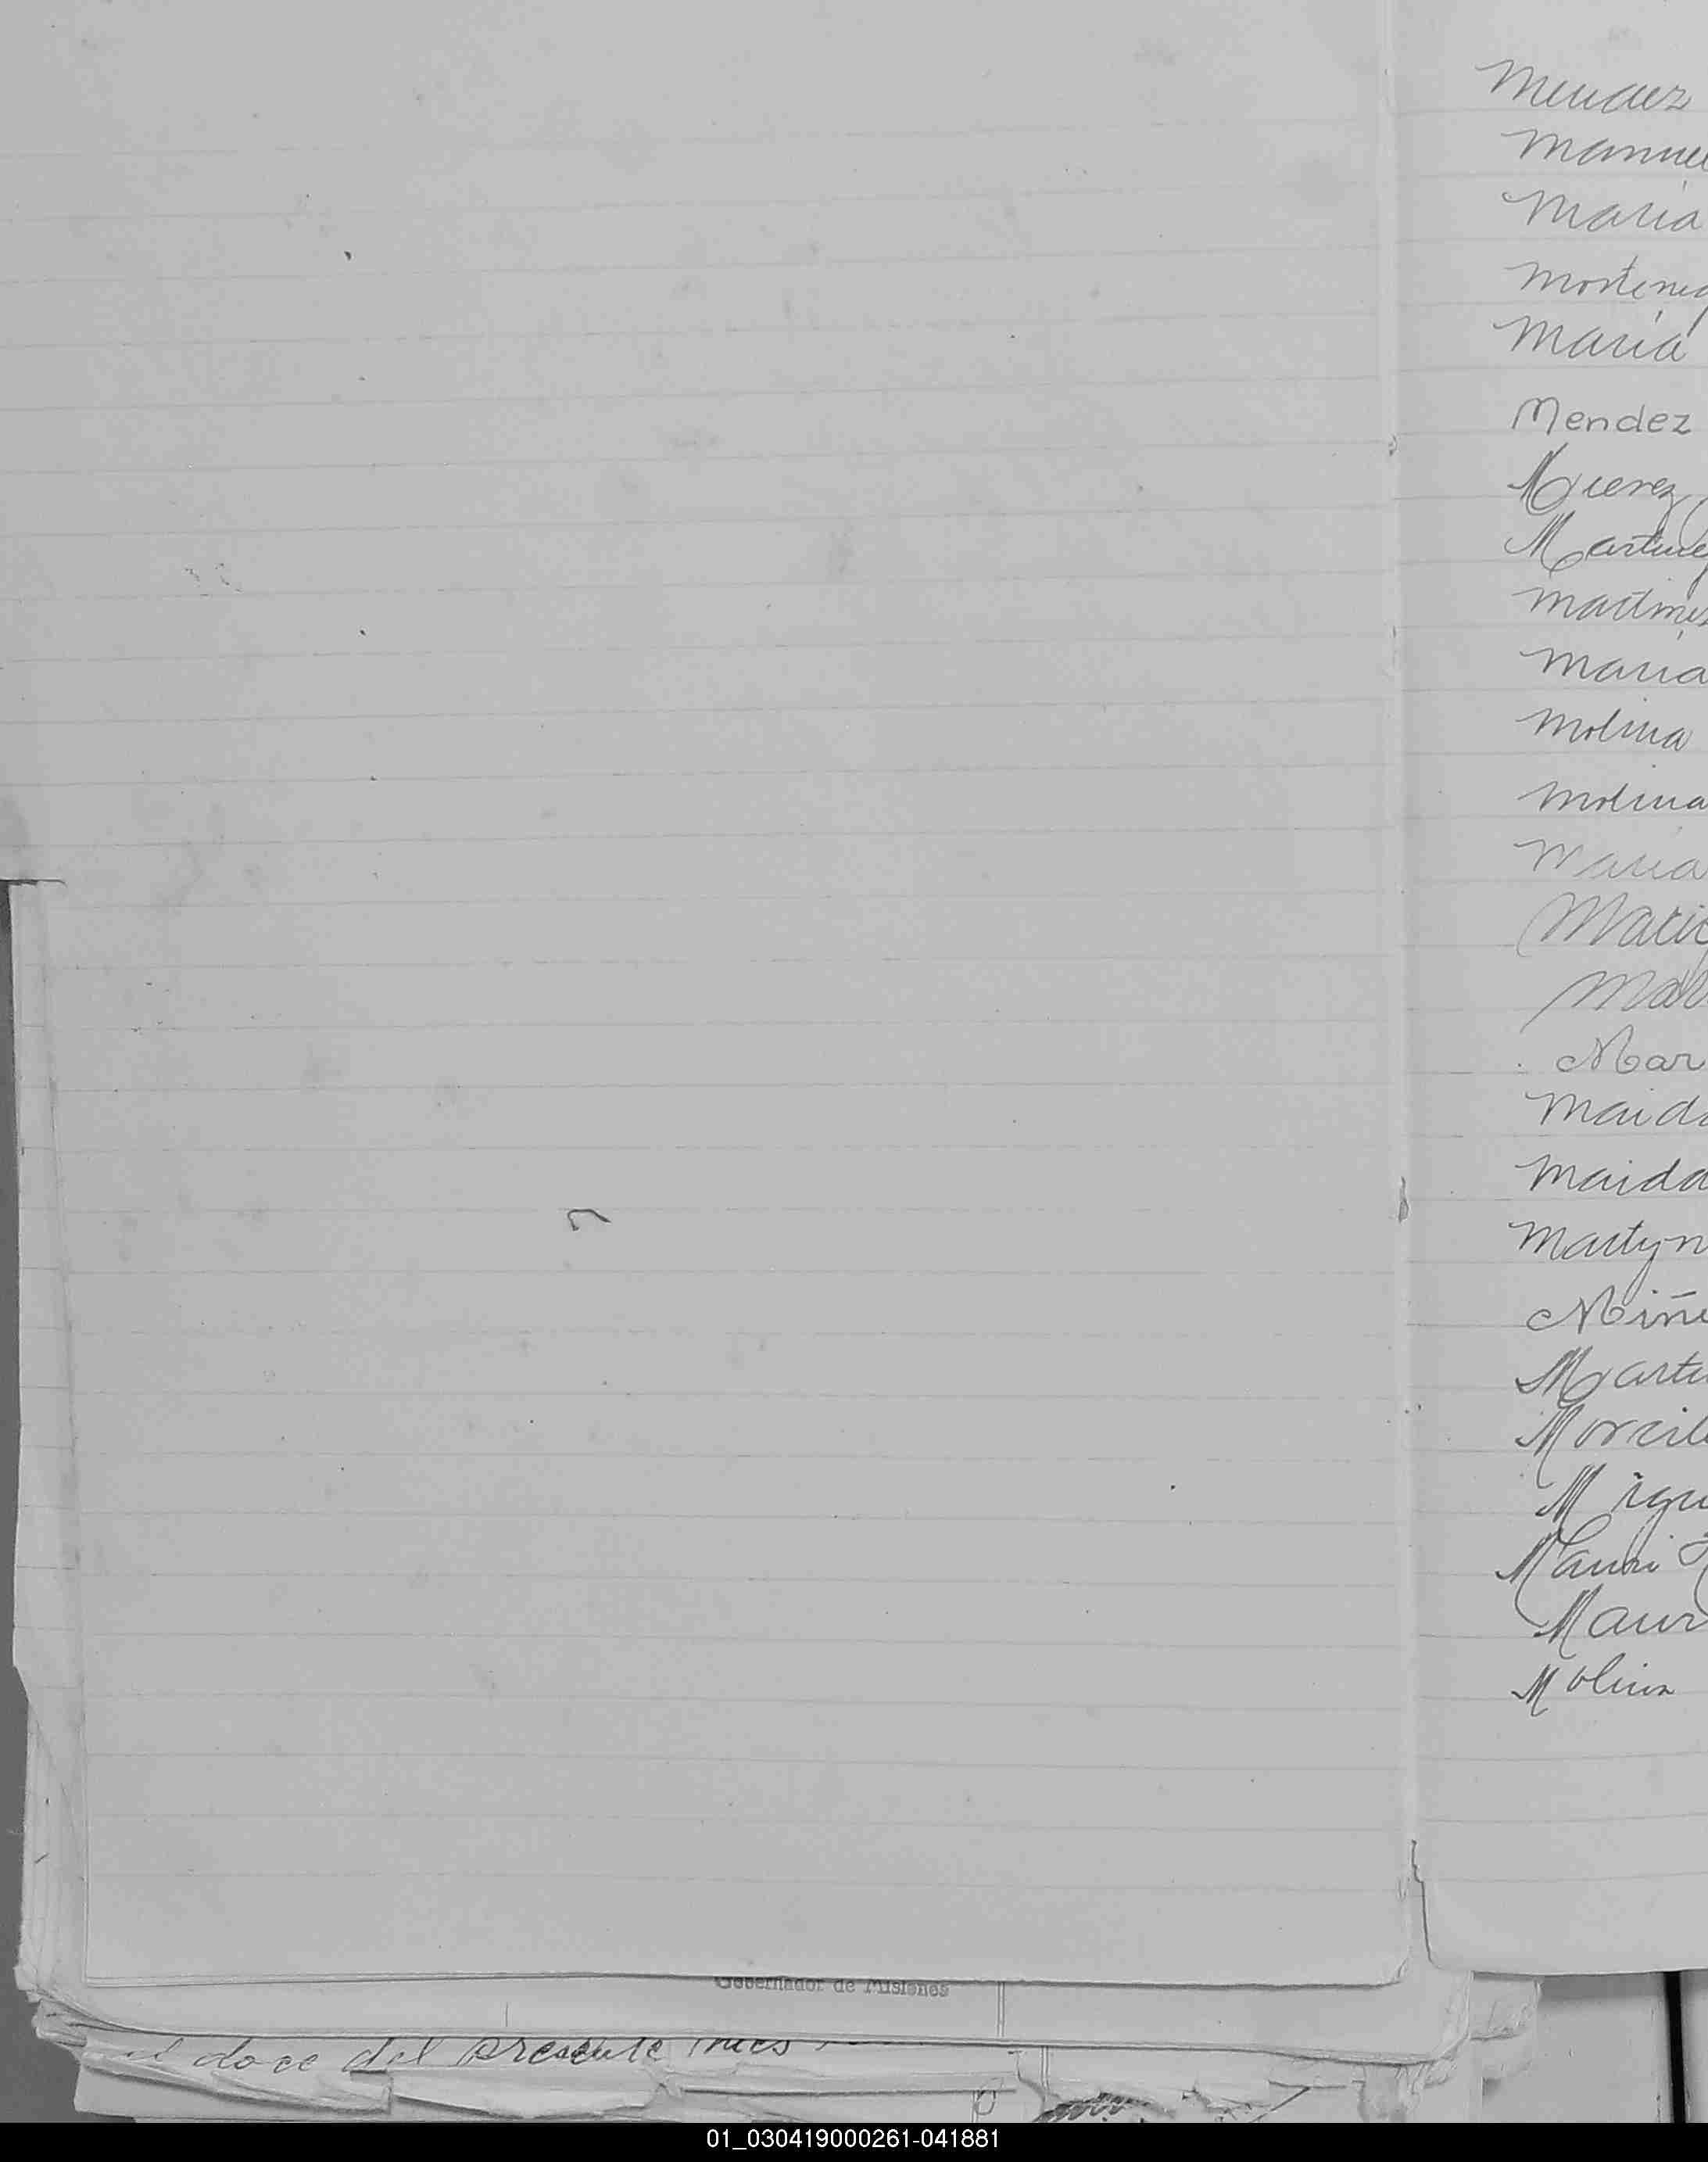 Mendez
Manuel
Maria
Monteneg
Maria
Mendez
Mierez
Martinez
Martinez
Maria
Molina
Molina
Maria
Mar
Maida
Maida
Martyn
Miñ
Marti
Morcil
Migu
Mauri
Maur
Molina
Gobernador de Misiones
el doce del presente mes
01_030419000261-041881